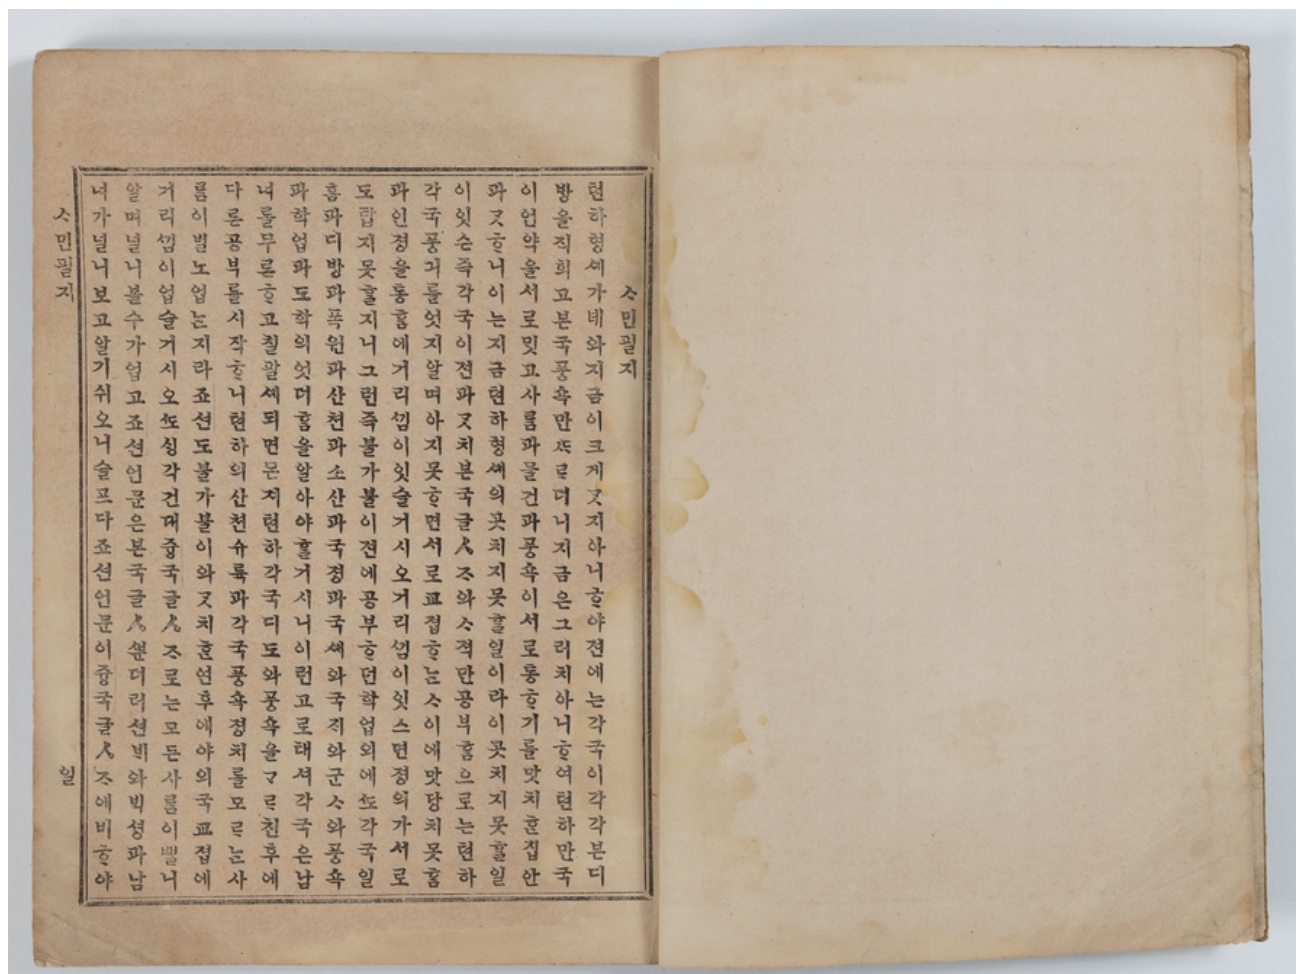 ᄉᆞ민필지
텬하형셰가녜와지금이크게ᄀᆞᆺ지아니ᄒᆞ야젼에는각국이각각본디
방을직희고본국풍쇽만ᄯᆞᄅᆞ더니지금은그러치아니ᄒᆞ여텬하만국
이언약을서로밋고사ᄅᆞᆷ과물건과풍쇽이서로통ᄒᆞ기를맛치ᄒᆞᆫ집안
과ᄀᆞᆺᄒᆞ니이는지금텬하형셰의곳치지못ᄒᆞᆯ일이라이곳치지못ᄒᆞᆯ일
이잇슨즉각국이젼과ᄀᆞᆺ치본국글ᄌᆞ와ᄉᆞ젹만공부ᄒᆞᆷ으로는텬하
각국풍긔를엇지알며아지못ᄒᆞ면서로교졉ᄒᆞᄂᆞᆫᄉᆞ이에맛당치못ᄒᆞᆷ
과인졍을통ᄒᆞᆷ에거리ᄭᅵᆷ이잇슬거시오거리ᄭᅵᆷ이잇스면졍의가서로
도탑지못ᄒᆞᆯ지니그런즉불가불이젼에공부ᄒᆞ던학업외에ᄯᅩ각국일
홈과디방과폭원과산쳔과소산과국졍과국셰와국ᄌᆡ와군ᄉᆞ와풍쇽
과학업과도학의엇더ᄒᆞᆷ을알아야ᄒᆞᆯ거시니이런고로태셔각국은남
녀를무론ᄒᆞ고칠팔셰되면몬져텬하각국디도와풍쇽을ᄀᆞᄅᆞ친후에
다른공부를시작ᄒᆞ니텬하의산쳔슈륙과각국풍쇽졍치를모ᄅᆞᄂᆞᆫ사
ᄅᆞᆷ이별노업ᄂᆞᆫ지라죠션도불가불이와ᄀᆞᆺ치ᄒᆞᆫ연후에야외국교졉에
거리ᄭᅵᆷ이업슬거시오ᄯᅩᄉᆡᆼ각건대즁국글ᄌᆞ로는모든사ᄅᆞᆷ이ᄲᆞᆯ니
알며널니볼수가업고죠션언문은본국글ᄲᅮᆫ더러션ᄇᆡ와ᄇᆡᆨ셩과남
녀가널니보고알기쉬오니슬프다죠션언문이즁국글ᄌᆞ에비ᄒᆞ야
ᄉᆞ민필지
일